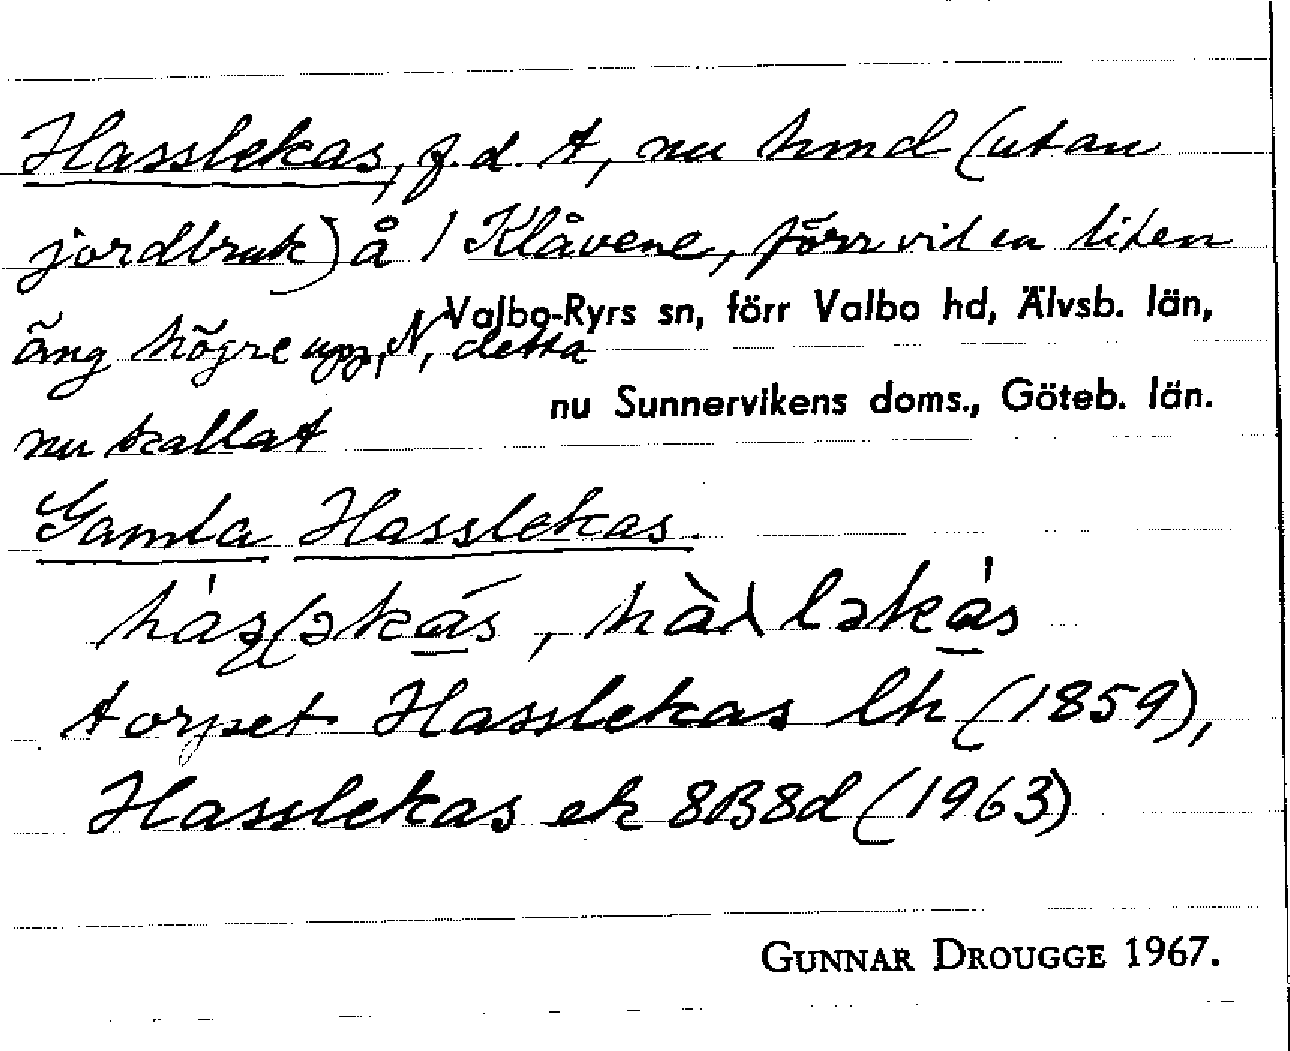 Hasslekas, f.d. t, nu hmd (utan
jordbruk) å / Klåvene, förr vid en liten
Valbo-Ryrs sn, förr Valbo hd, Älvsb. län,
äng högre upp, N, detta
nu Sunnervikens doms., Göteb. län.
nu kallat
Gamla Hasslekas.
torpet Hasslekas lh (1859),
Hasslekas ek 8B8d (1963)
GUNNAR DROUGGE 1967.